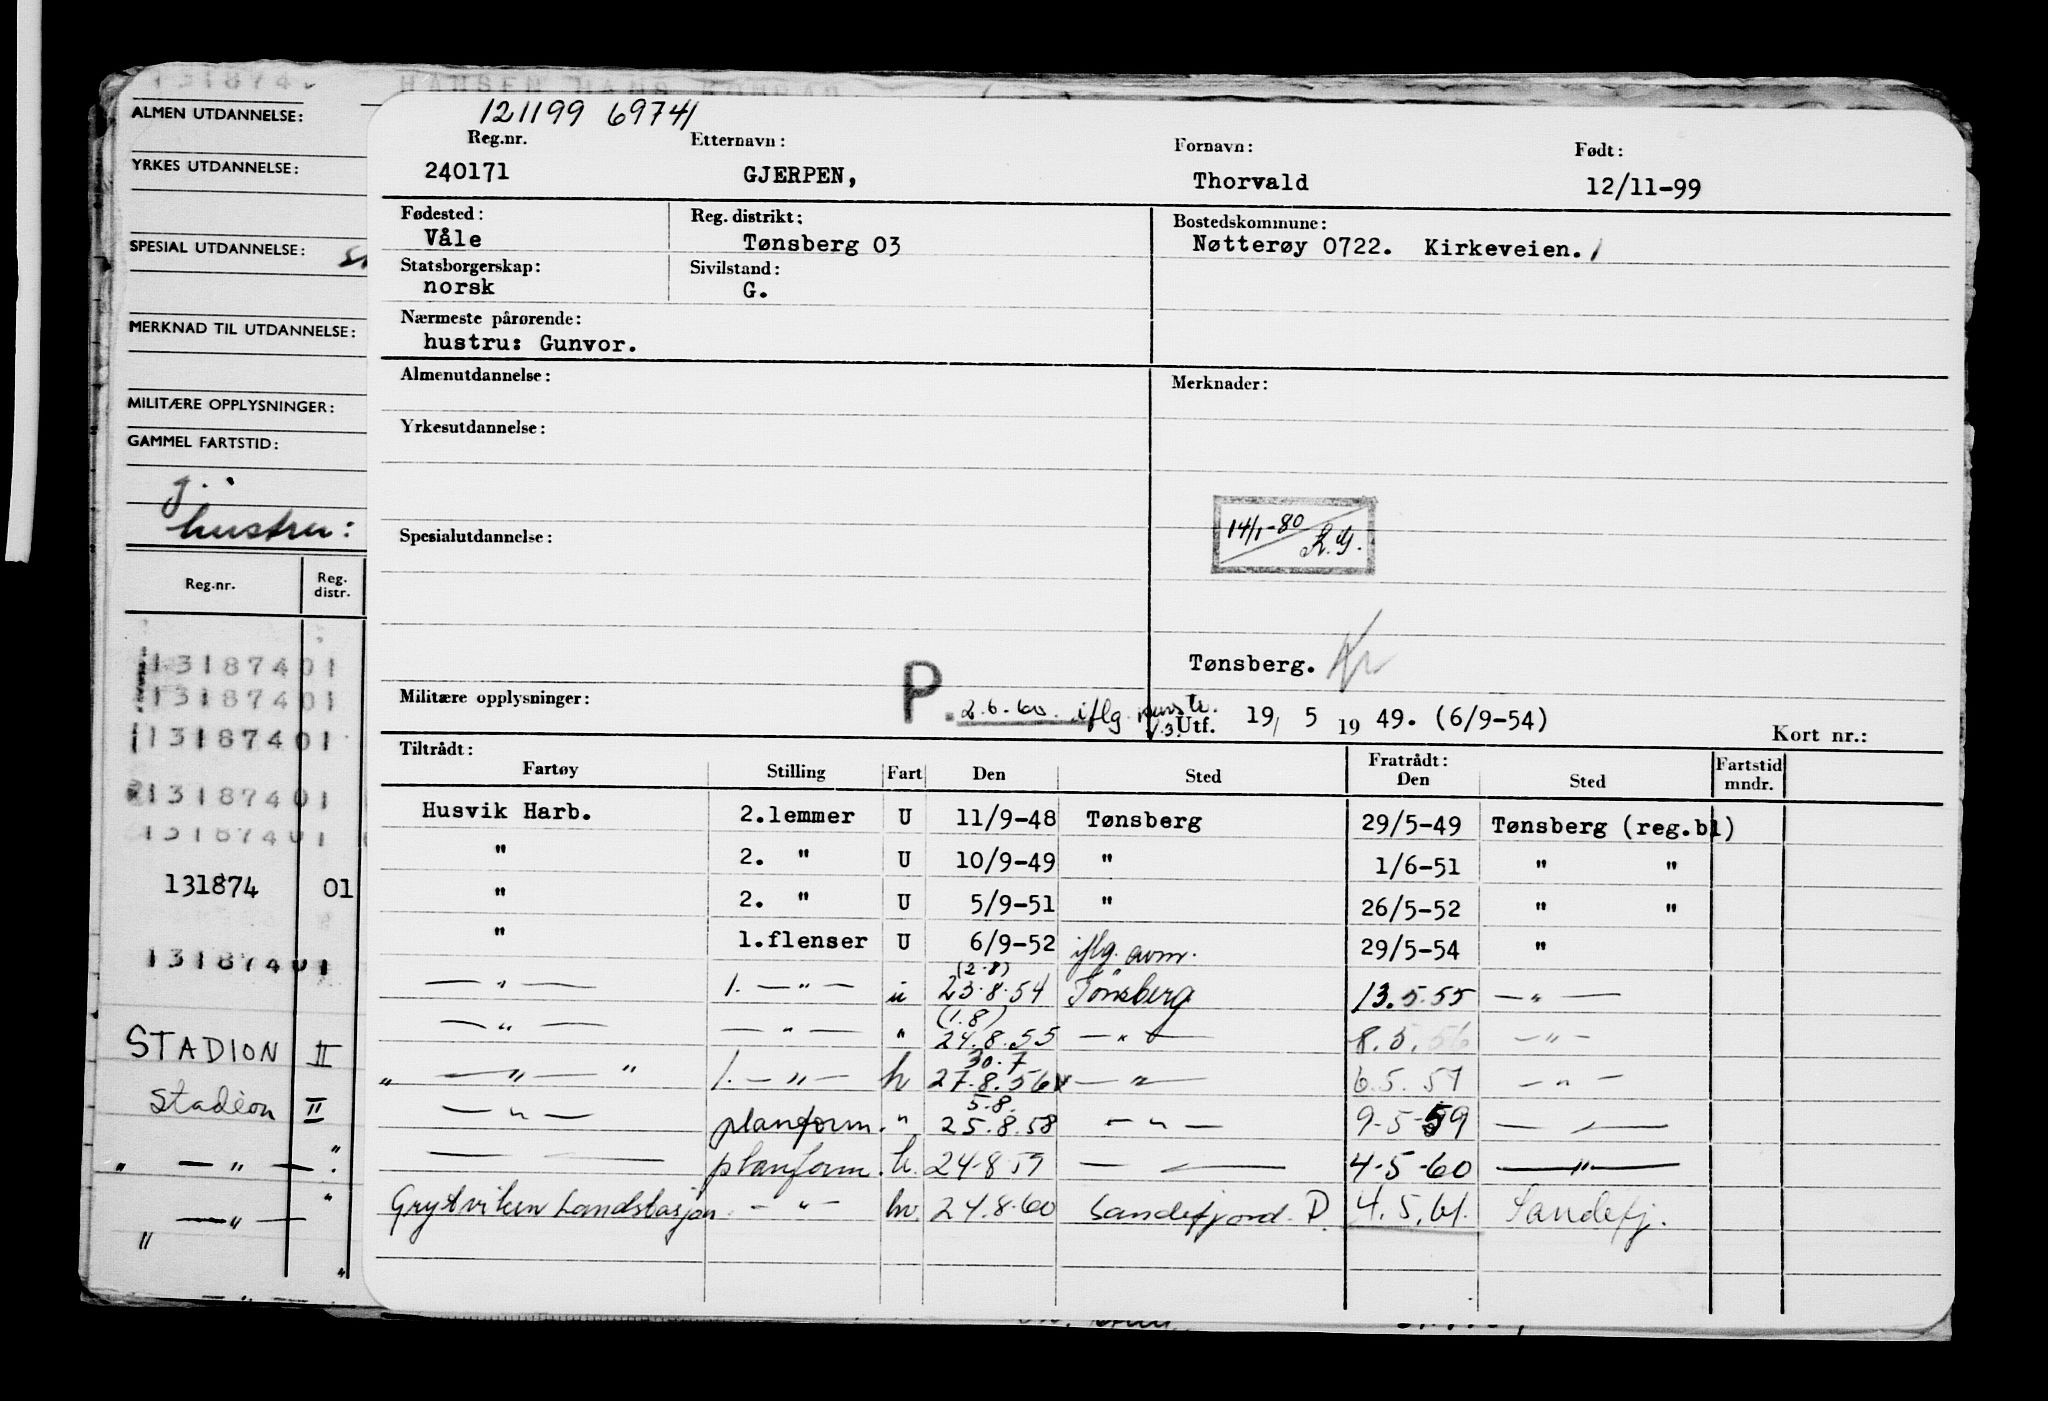 131874.
HANSEN HANS
ALMEN UTDANNELSE:
YRKES UTDANNELSE:
SPESIAL UTDANNELSE:
MERKNAD TIL UTDANNELSE:
MILITÆRE OPPLYSNINGER:
GAMMEL FARTSTID:
hustru:
Reg.nr. Reg. distr.
13187401
13187401
13187401
13187401
13187401
131874 01
13187401
STADION II
Stadion II
" — " — "
— " — "
" "
121199 69741
Reg.nr. Etternavn: Fornavn: Født:
240171 GJERPEN, Thorvald 12/11-99
Fødested: Reg. distrikt: Bostedskommune:
Våle Tønsberg 03 Nøtterøy 0722. Kirkeveien.
Statsborgerskap: Sivilstand:
norsk G.
Nærmeste pårørende:
hustru: Gunvor.
Almenutdannelse: Merknader:
Yrkesutdannelse:
14/1-80
Spesialutdannelse:
Tønsberg.
Militære opplysninger: P. 2.6.60. iflg.
Utf. 19/ 5 19 49. (6/9-54) Kort nr.:
Tiltrådt: Fratrådt: Fartstid
Fartøy Stilling Fart Den Sted Den Sted mndr.
Husvik Harb. 2.lemmer U 11/9-48 Tønsberg 29/5-49 Tønsberg (reg.bl)
" 2. " U 10/9-49 " 1/6-51 " "
" 2. " U 5/9-51 " 26/5-52 " "
" 1.flenser U 6/9-52 iflg. avm. 29/5-54 "
(2.8)
— " — 1. — " — u 23.8.54 Tønsberg 13.5.55 — " —
(1.8)
— " — — " — " 24.8.55 — " — 8.5.56 — " —
30.7
" — " — " 1. — " — h 27.8.56 — " — 6.5.57 — " —
5.8.
— " — planform. " 25.8.58 — " — 9-5-59 — " —
— planform. h. 24-8-59 — " — 4-5-60 — " —
Grytviken Landstasjon — " — hv. 24.8.60 Sandefjord. P. 4.5.61. Sandefj.